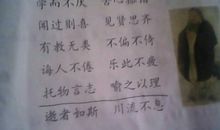 学而不厌 善心措措
闻过则喜 见贤思齐
有教无类 不偏不倚
诲人不倦 乐此不疲
托物言志 喻之以理
逝者如斯 川流不息